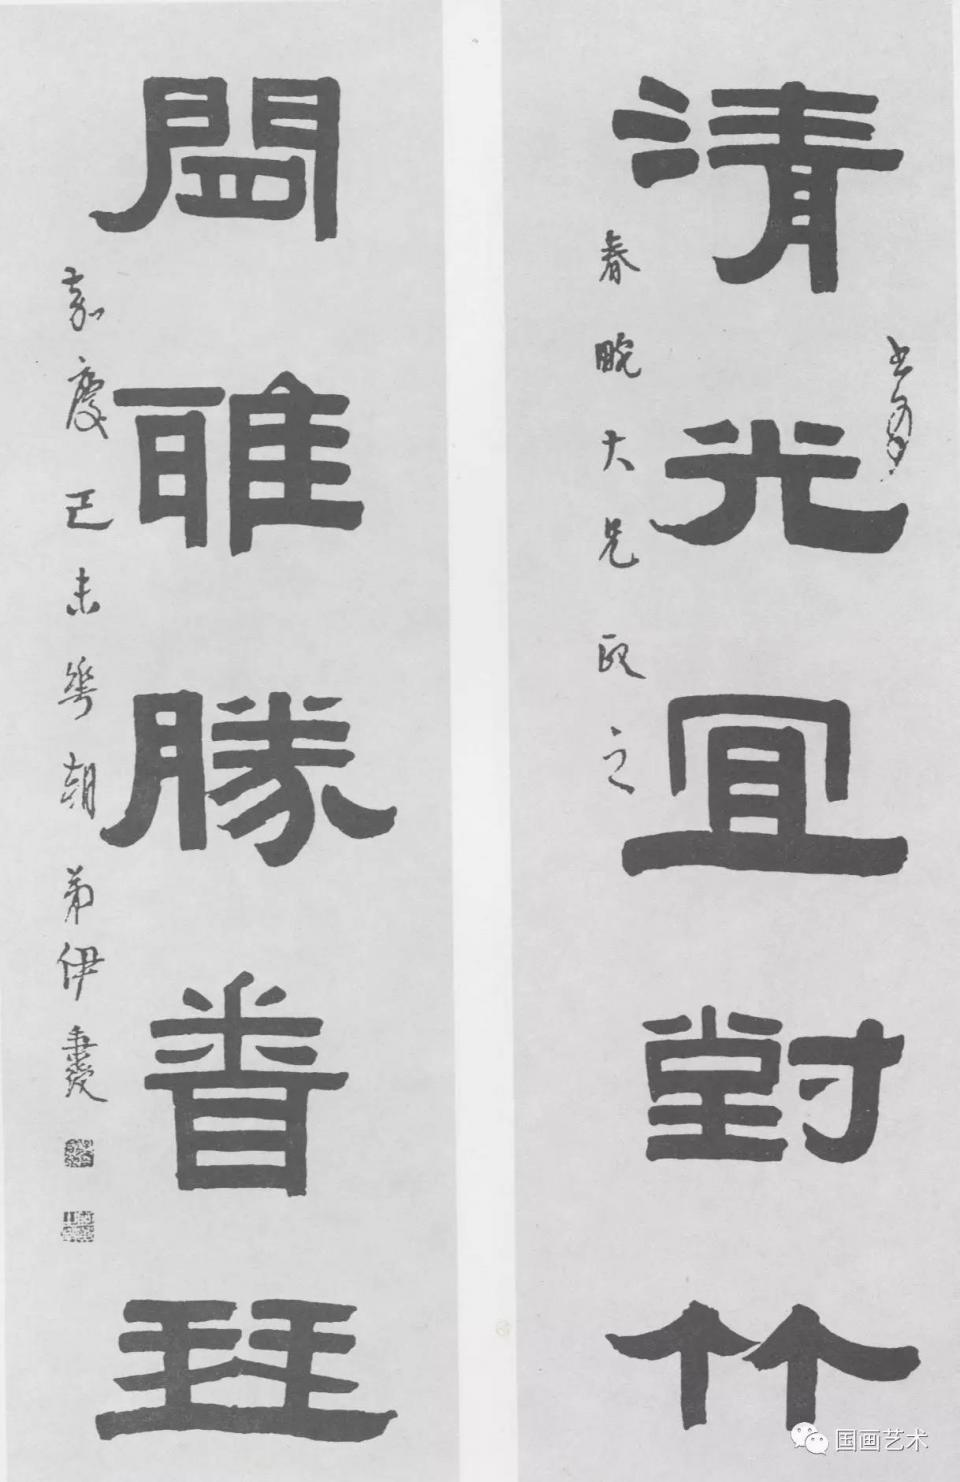 清光宜對竹
春畹大兄政之
閒雅勝書琴
嘉慶己未華朝弟伊秉綬
国画艺术